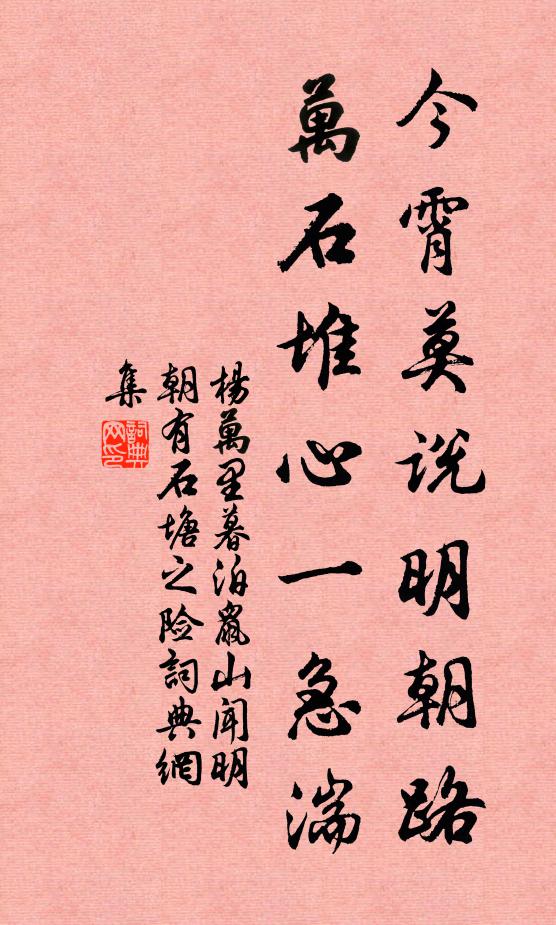 今霄莫说明朝路
萬石堆心一急湍
楊萬里暮泊鼠山闻明
朝有石塘之险詞典網
集
詞典
网印